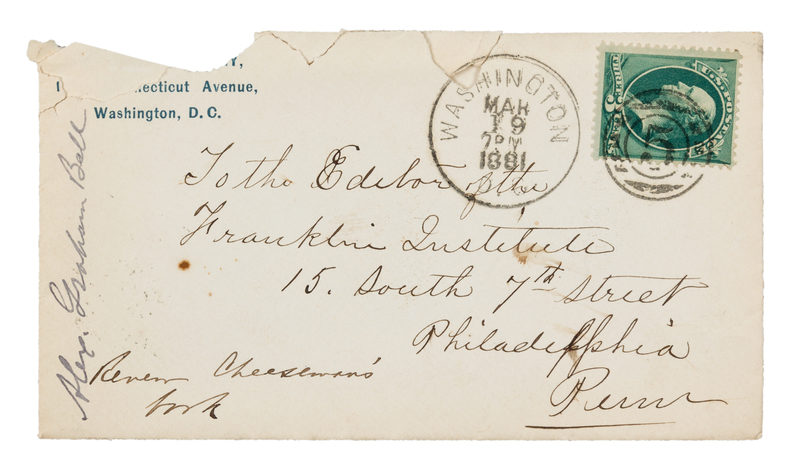 necticut Avenue,
Washington, D.C.
WASHINGTON
MAR
19
7PM
1881
THREE CENTS
3
U.S. POSTAGE
To the Editor of the
Franklin Institute
15. South 7th Street
Philadelphia
Penn
Alex. Graham Bell
Cheeseman's
work